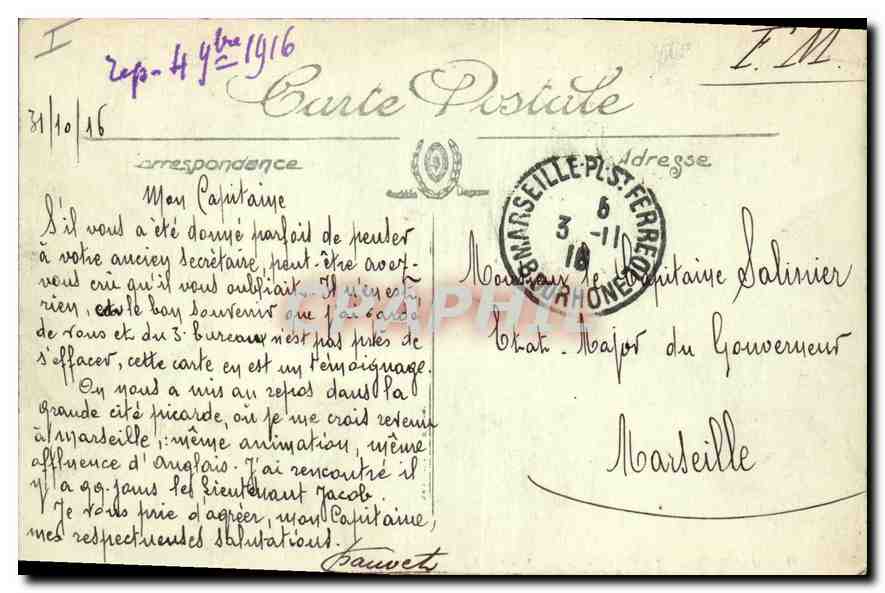 I
rep. 4 9bre 1916
F.M.
Carte Postale
31/10/16
Correspondance
Adresse
Mon Capitaine
S'il vous a été donné parfois de penser
à votre ancien secrétaire, peut-être avez-
vous cru qu'il vous oubliait. Il n'en est
rien, et le bon souvenir que j'ai gardé
de vous et du 3e bureau n'est pas près de
s'effacer, cette carte en est un témoignage.
On nous a mis au repos dans la
grande cité picarde, où je me crois revenu
à Marseille, : même animation, même
affluence d'Anglais. J'ai rencontré il
y a qq. jours le Lieutenant Jacob.
Je vous prie d'agréer, mon Capitaine,
mes respectueuses salutations.
MARSEILLE-PL. ST FERREOL
6
3 -11
16
B. DU RHONE
Monsieur le Capitaine Salinier
Etat-Major du Gouverneur
Marseille
CPAPHIL